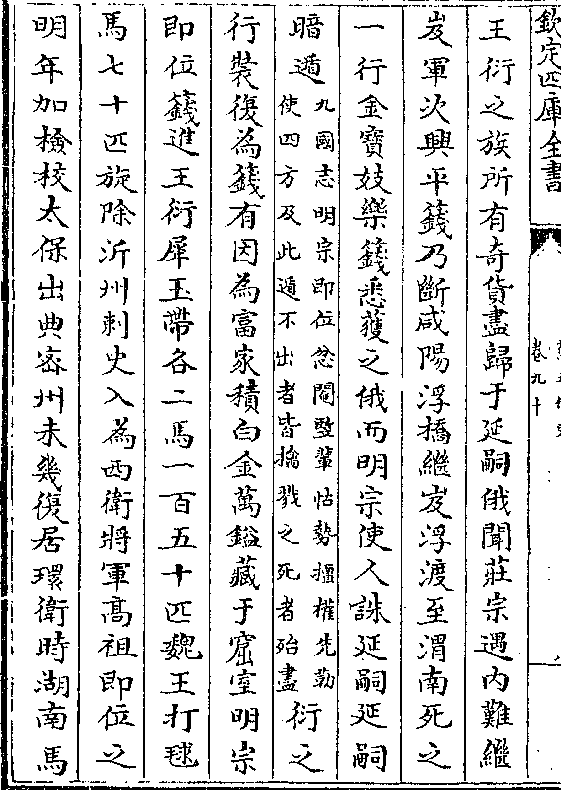 欽定四庫全書
卷九十
王衍之族所有奇貨盡歸于延嗣俄聞莊宗遇内難繼
岌軍次興平籛乃斷咸陽浮橋繼岌浮渡至渭南死之
一行金寳妓樂籛悉獲之俄而明宗使人誅延嗣延嗣
暗遁九國志明宗即位忿閹竪輩怙勢擅權先勒使四方及此遁不出者皆擒戮之死者殆盡衍之
行裝復為籛有因為富家積白金萬鎰藏于窟室明宗
即位籛進王衍犀玉帶各二馬一百五十匹魏王打毬
馬七十匹旋除沂州刺史入為西衛將軍髙祖即位之
明年加檢校太保出典宻州未幾復居環衛時湖南馬